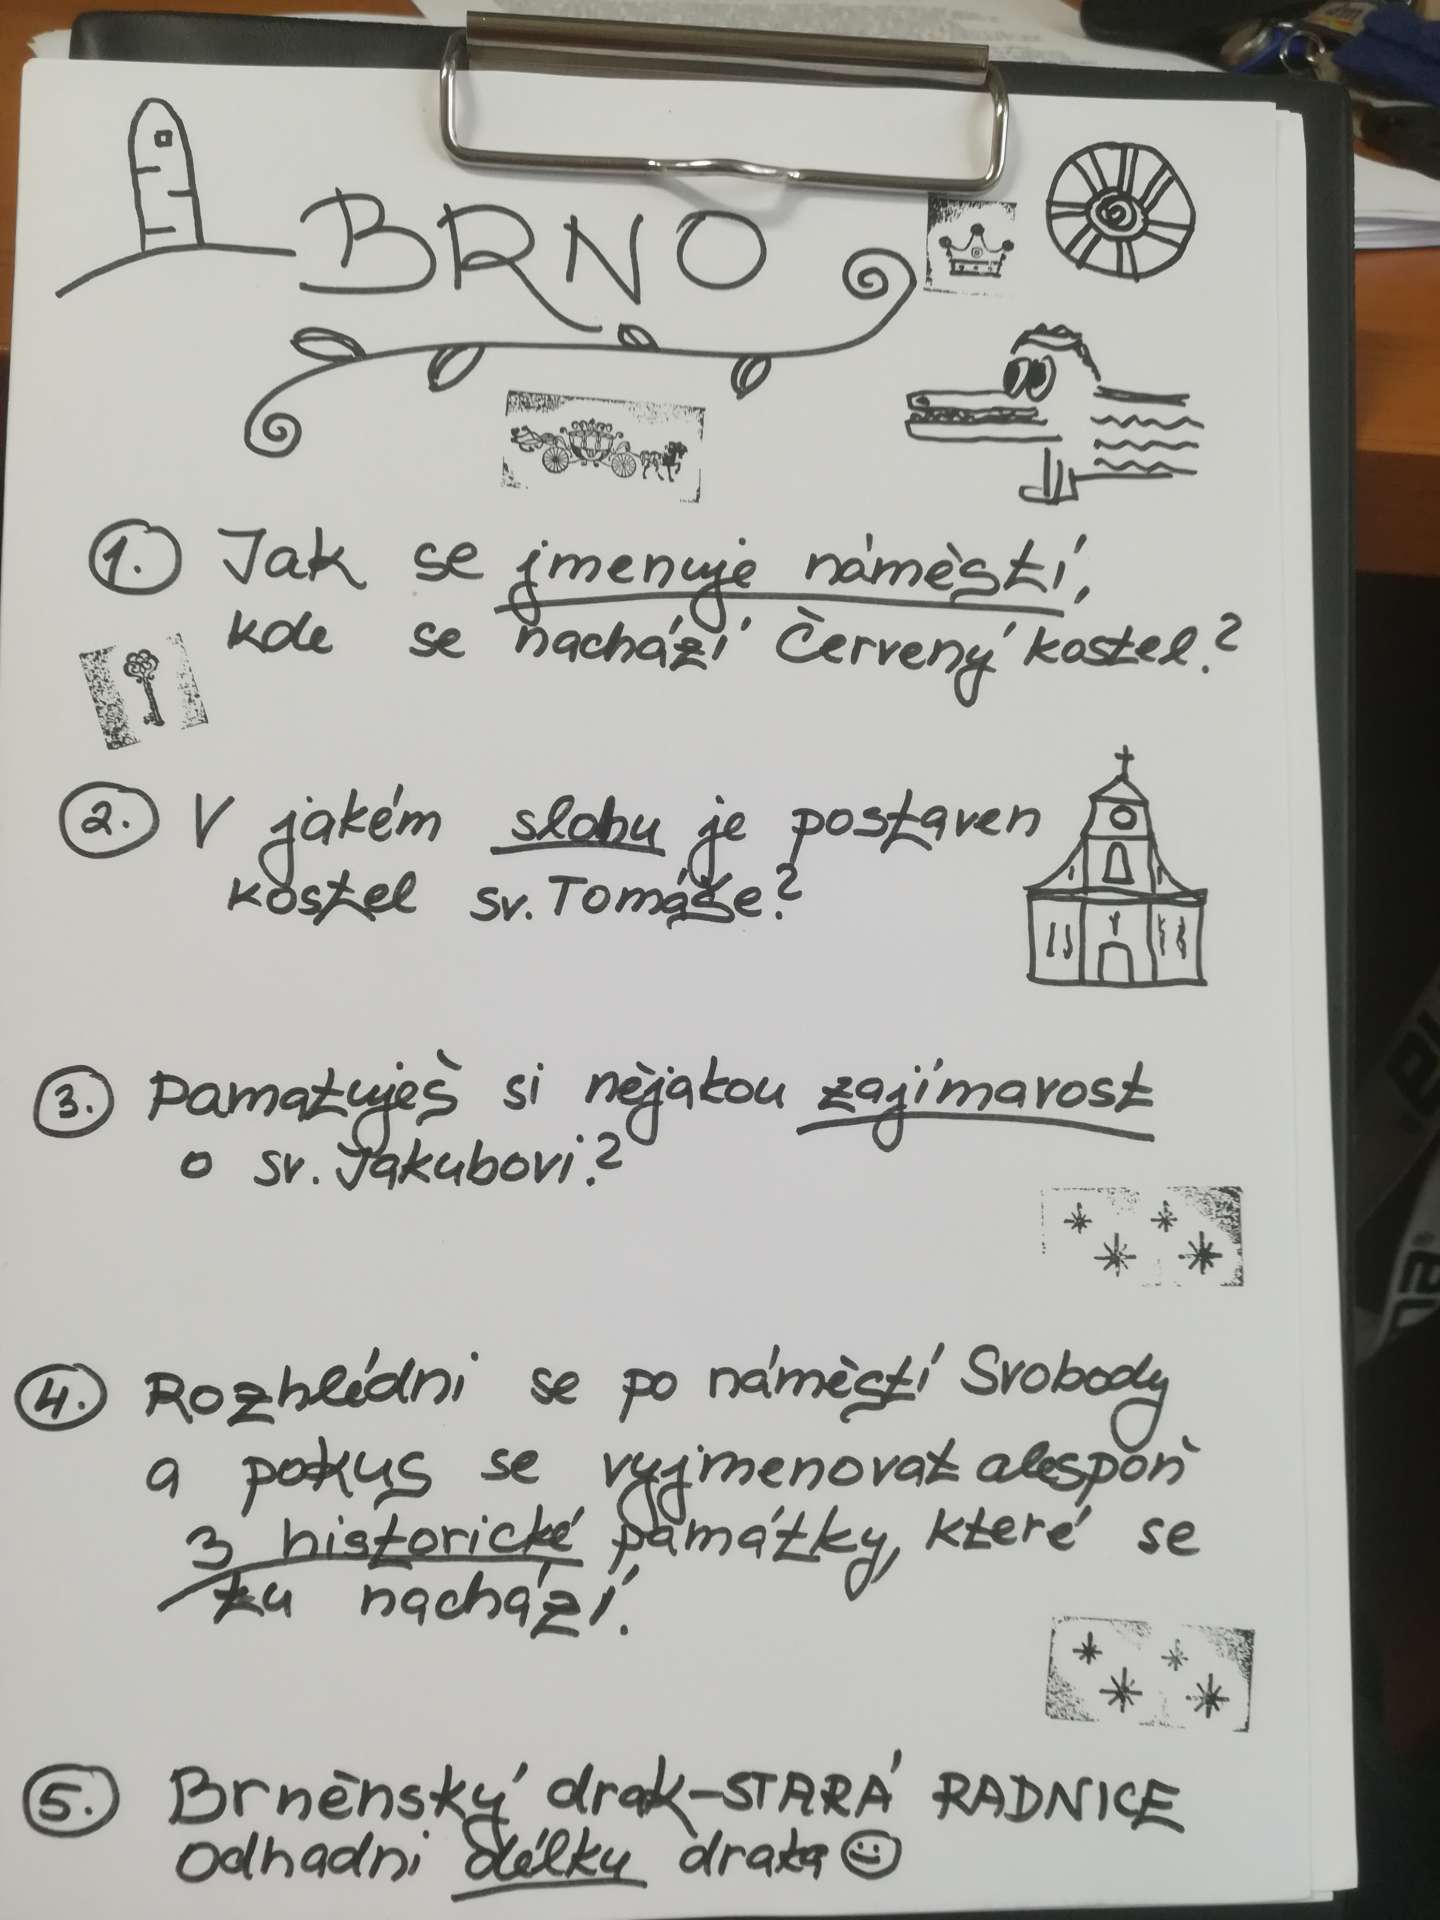 BRNO
1. Jak se jmenuje náměstí,
kde se nachází Červený kostel?
2. V jakém slohu je postaven
kostel sv. Tomáše?
3. Pamatuješ si nějakou zajímavost
o sv. Jakubovi?
4. Rozhlédni se po náměstí Svobody
a pokus se vyjmenovat alespoň
3 historické památky, které se
tu nachází.
5. Brněnský drak-STARÁ RADNICE
odhadni délku draka